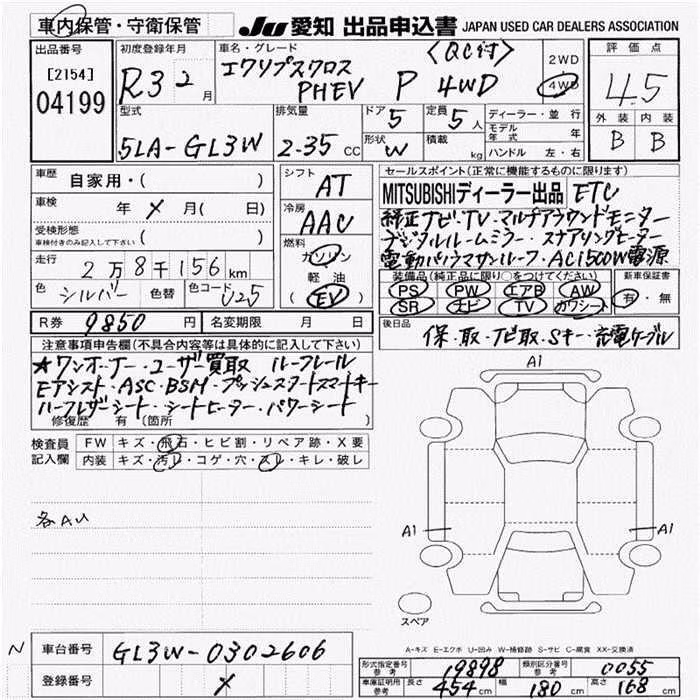 車内保管・守衛保管
JU 愛知 出品申込書 JAPAN USED CAR DEALERS ASSOCIATION
出品番号
[2154]
04199
初度登録年月
R3 2月
車名・グレード
〈QC付〉
エクリプスクロス
PHEV P 4WD
2WD
4WD
評価点
4.5
外装 内装
B B
型式
5LA-GL3W
排気量
2-35 CC
ドア 5
形状 W
定員 5人
積載 kg
ディーラー・並行
モデル年式 年
ハンドル 左・右
車歴 自家用・( )
車検 年 メ 月( 日)
受検形態
車検付きのみ記入して下さい ( )
走行 2万8千156km
色 シルバー 色替 色コード U25
シフト AT
冷房 AAC
燃料
ガソリン
軽油
(EV)
セールスポイント(正常に機能するものに限ります)
MITSUBISHIディーラー出品 ETC
純正ナビ・TV・マルチアラウンドモニター
デジタルルームミラー・ステアリングヒーター
電動パノラマサンルーフ・AC1500W電源
装備品(純正品に限り○をつけてください)
PS PW エアB AW
SR ナビ TV カワシート
新車保証書
有・無
R券 9850円 名変期限 月 日
後日品 保・取・ナビ取・Sキー・充電ケーブル
注意事項申告欄(不具合内容等は具体的に記入して下さい)
★ワンオーナー・ユーザー買取 ルーフレール
Eアシスト・ASC・BSM・プッシュスタートスマートキー
ハーフレザーシート・シートヒーター・パワーシート
修復歴 有(箇所 )
検査員記入欄
FW キズ・飛石・ヒビ割・リペア跡・X要
内装 キズ・汚レ・コゲ・穴・スレ・キレ・破レ
各AU
A1
A1
A1
スペア
A-キズ E-エクボ U-凹み W-補修跡 S-サビ C-腐食 XX-交換済
N
車台番号 GL3W-0302606
登録番号 メ
形式指定番号 参考 19898 類別区分番号 参考 0055
車庫証明用 参考 長さ 454cm 幅 180cm 高さ 168cm